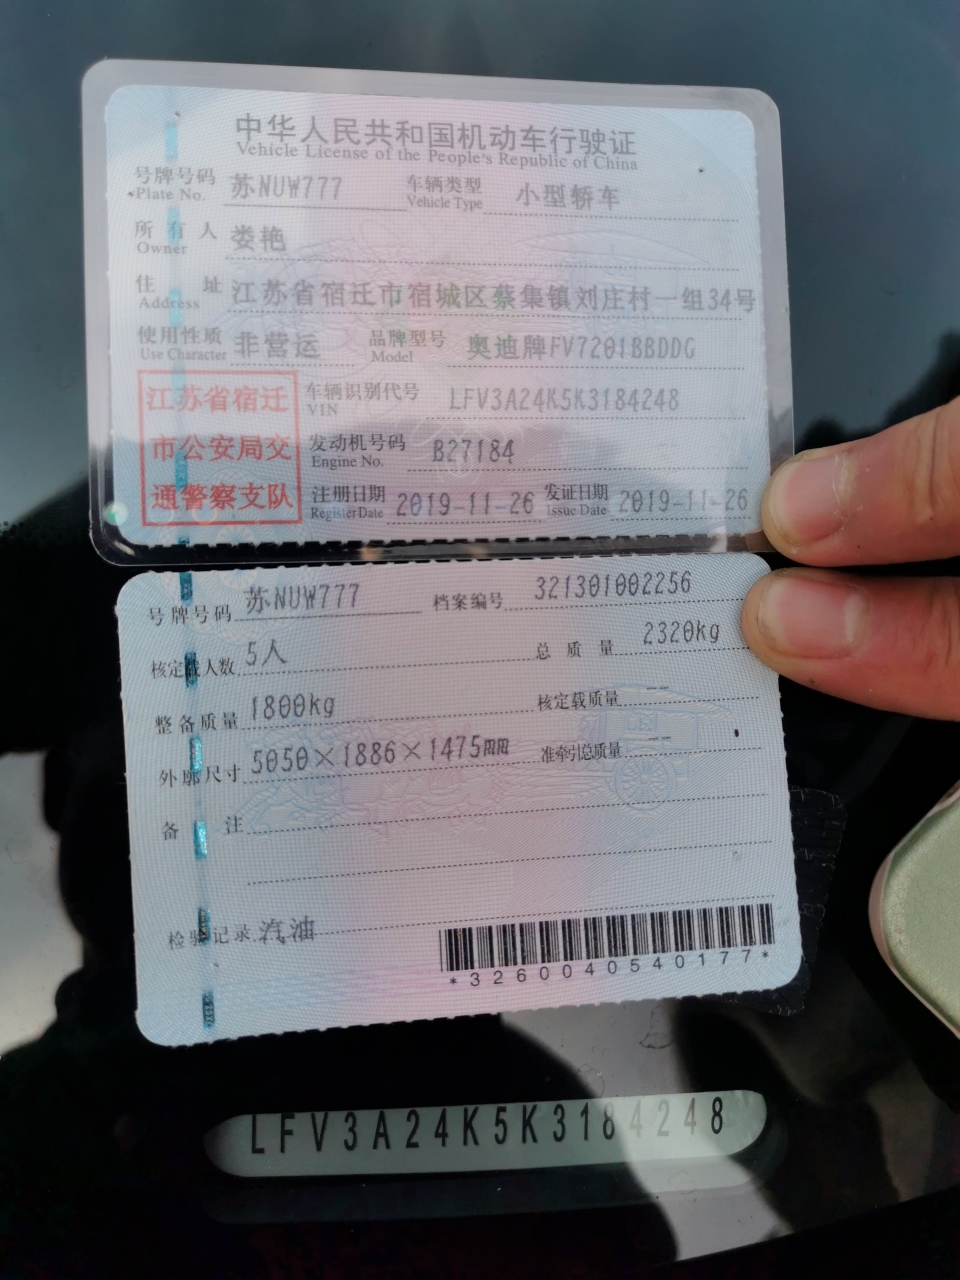 中华人民共和国机动车行驶证
Vehicle License of the People's Republic of China
号牌号码 苏NUW777 车辆类型 小型轿车
Plate No. Vehicle Type
所有人 娄艳
Owner
住址 江苏省宿迁市宿城区蔡集镇刘庄村一组34号
Address
使用性质 非营运 品牌型号 奥迪牌FV7201BBDDG
Use Character Model
江苏省宿迁
市公安局交
通警察支队
车辆识别代号 LFV3A24K5K3184248
VIN
发动机号码 B27184
Engine No.
注册日期 2019-11-26 发证日期 2019-11-26
Register Date Issue Date
号牌号码 苏NUW777 档案编号 321301002256
核定载人数 5人 总质量 2320kg
整备质量 1800kg 核定载质量 --
外廓尺寸 5050×1886×1475mm 准牵引总质量 --
备注
检验记录 汽油
*3260040540177*
LFV3A24K5K3184248